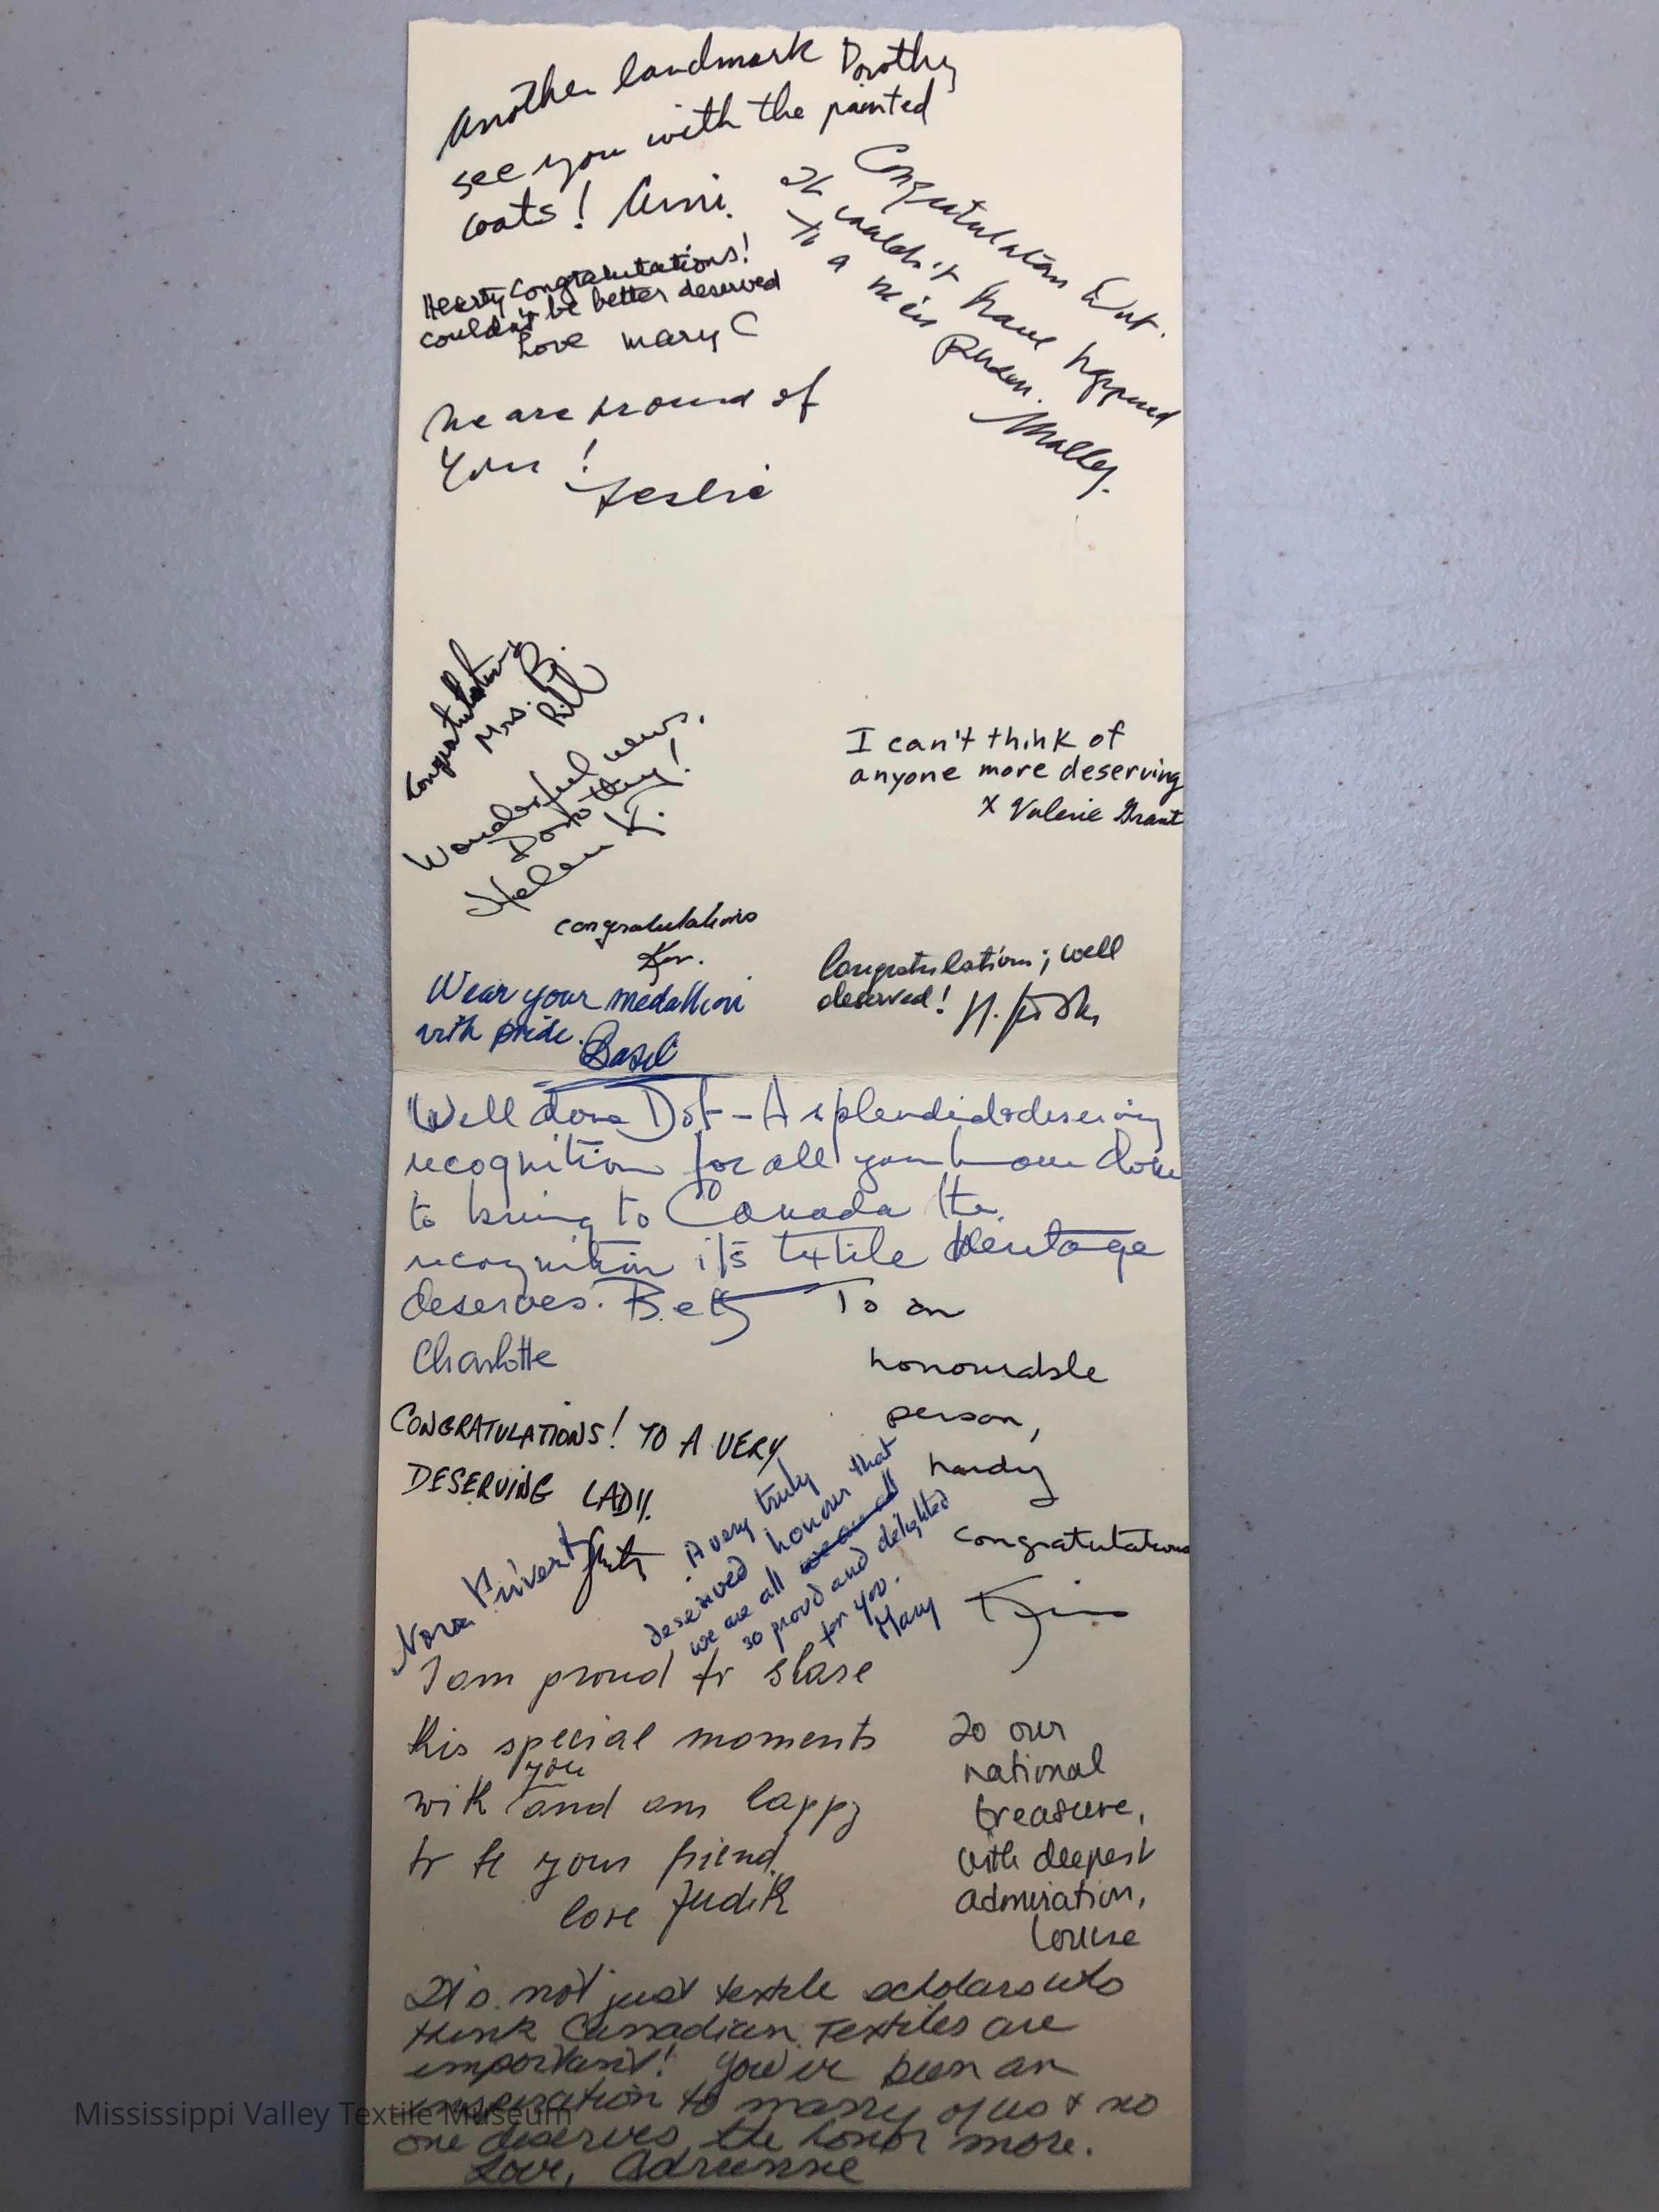 Another landmark Dorothy
see you with the painted
coats!
Congratulations Dot.
It couldn't have happened
to a nicer
Person.
Molly.
Hearty Congratulations!
couldn't be better deserved
Love Mary C
We are proud of
you!
Leslie
Congratulations
Mrs. B.
Bill
Wonderful news.
Dorothy!
Helen K.
I can't think of
anyone more deserving
x Valerie Grant
congratulations
Congratulations; well
deserved!
Wear your medallion
with pride.
Basil
Well done Dot – A splendid & deserving
recognition for all you have done
to bring to Canada the
recognition its textile Heritage
deserves. Betty
Charlotte
To an
honourable
person,
hardy
congratulations
CONGRATULATIONS! TO A VERY
DESERVING LADY.
Nora
A very truly
deserved honour that
we are all
so proud and delighted
for you.
Mary
I am proud to share
this special moments
with you and am happy
to be your friend.
love Judith
To our
national
treasure,
with deepest
admiration,
Louise
It's not just textile scholars who
think Canadian Textiles are
important! You've been an
inspiration to many of us & no
one deserves the honor more.
Love, Adrienne
Mississippi Valley Textile Museum